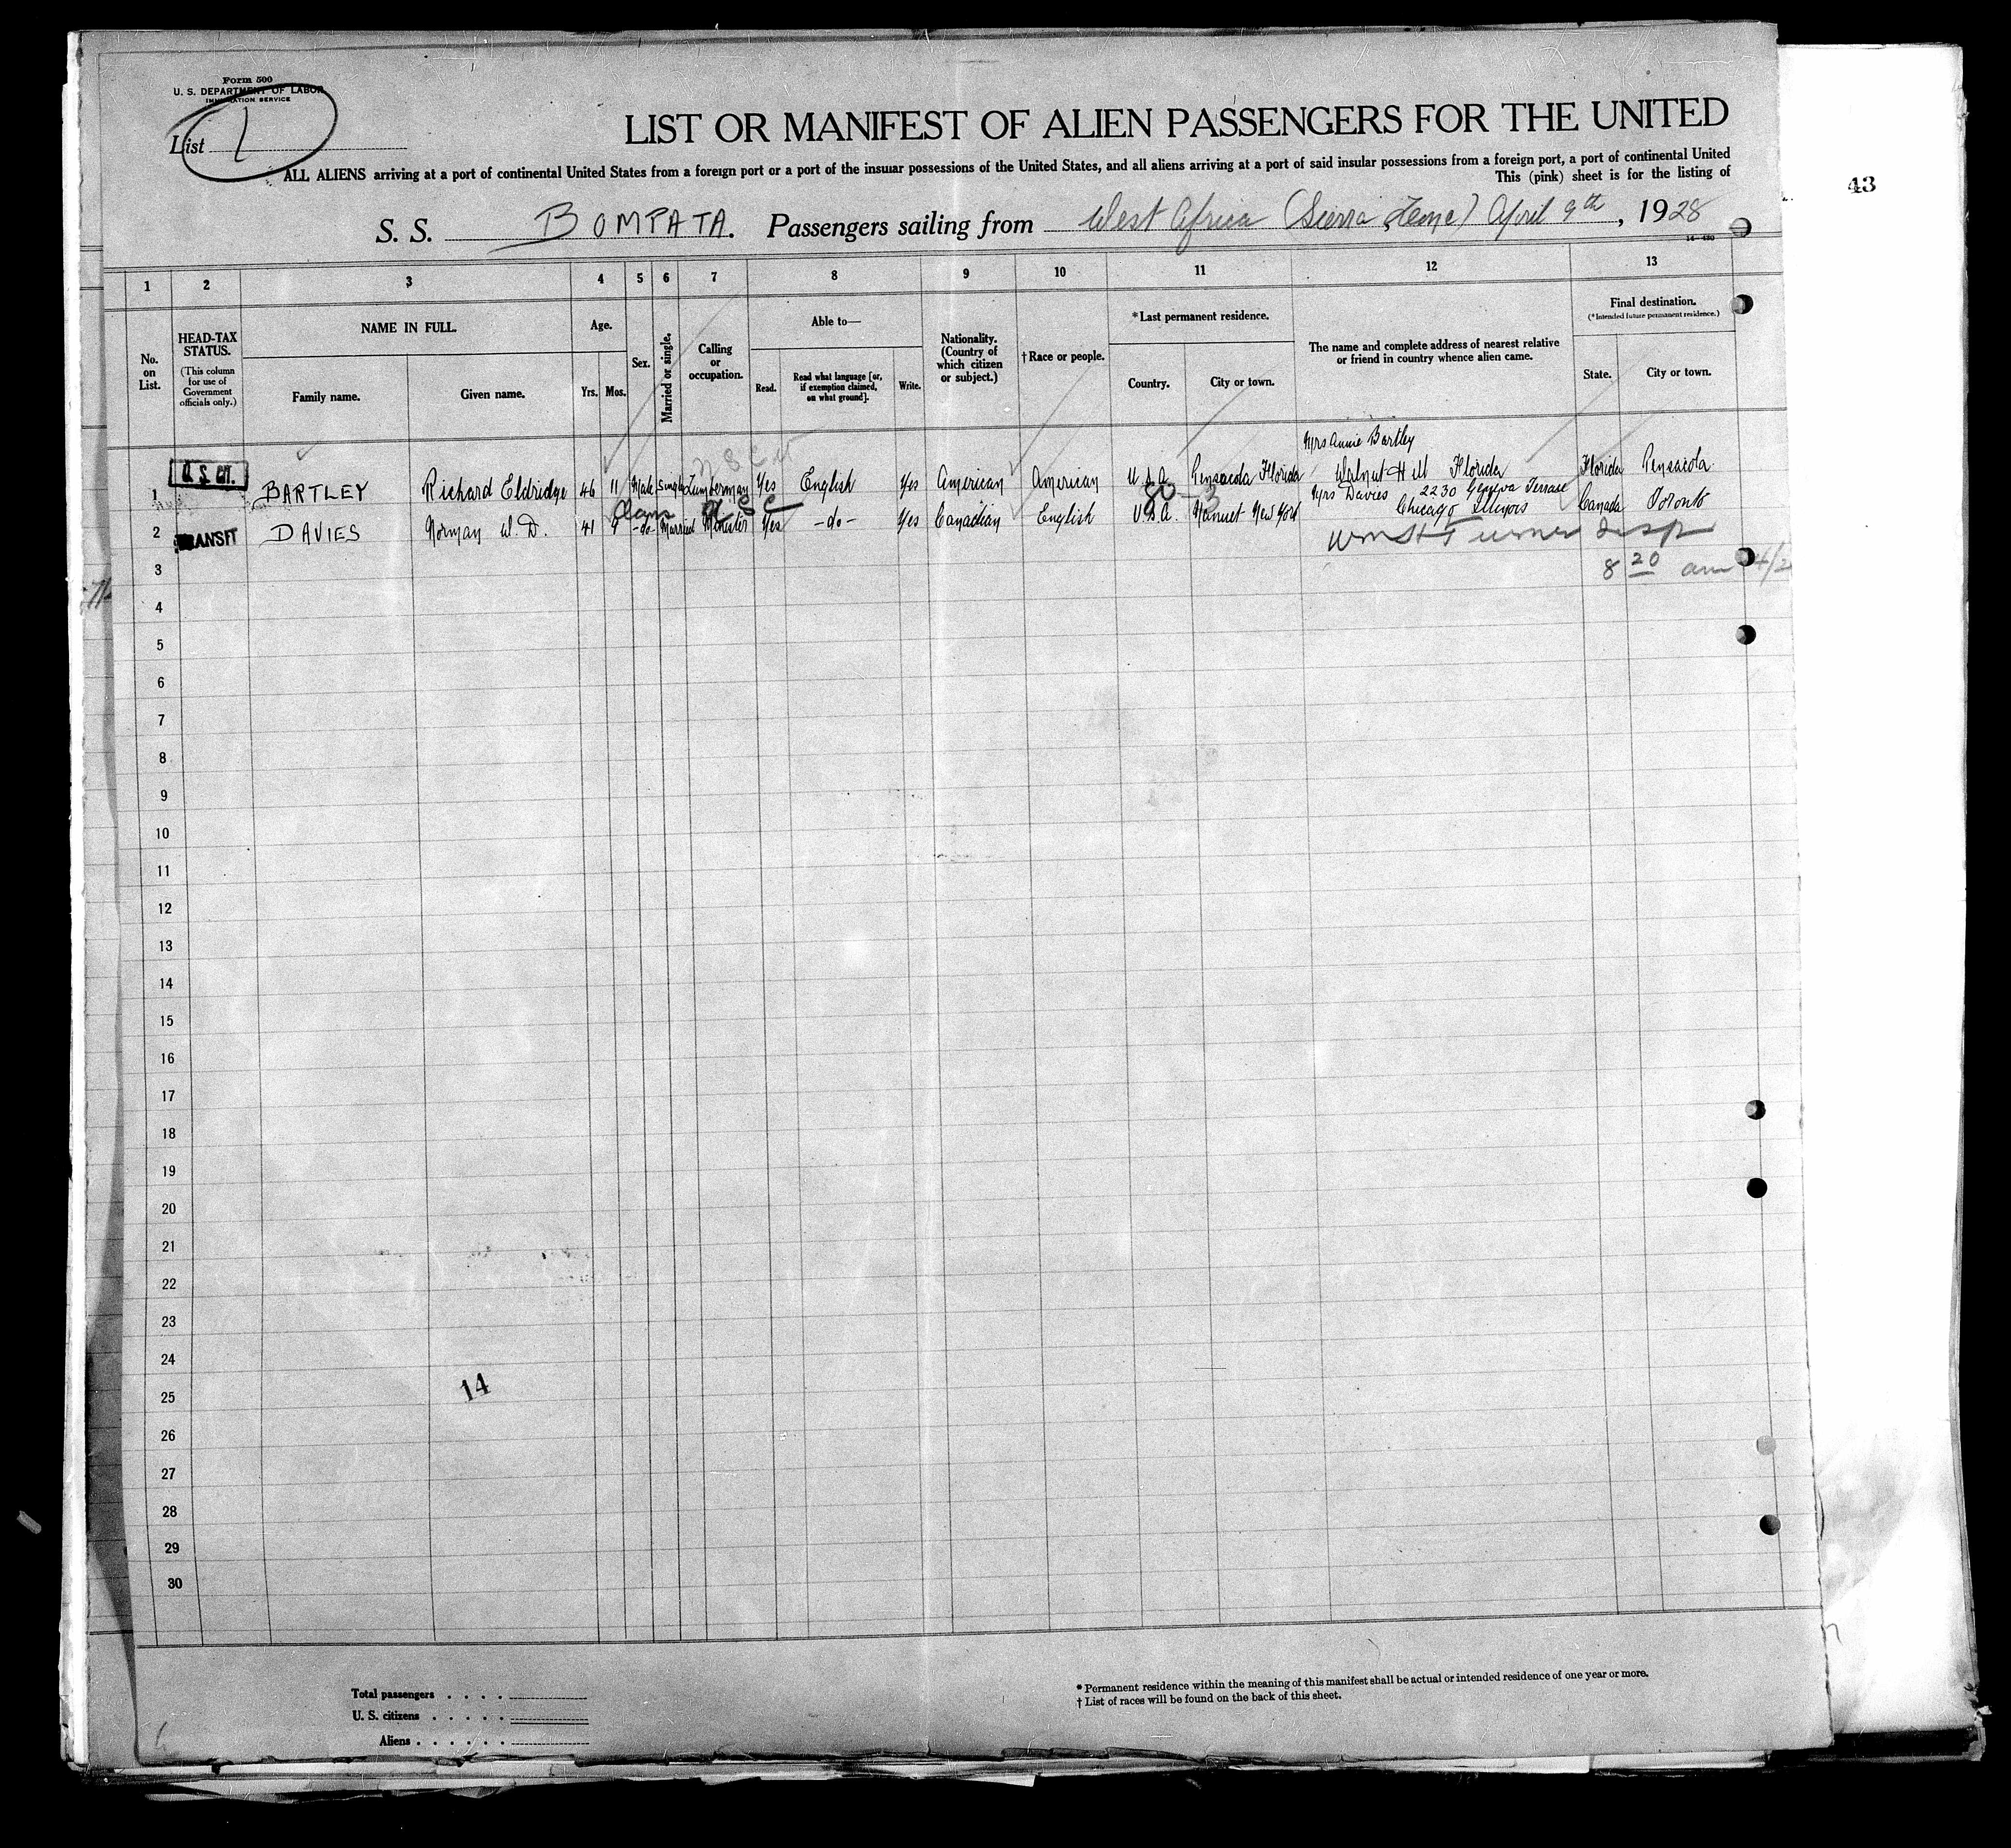 Form 500
U. S. DEPARTMENT OF LABOR
IMMIGRATION SERVICE
List 1
LIST OR MANIFEST OF ALIEN PASSENGERS FOR THE UNITED
ALL ALIENS arriving at a port of continental United States from a foreign port or a port of the insular possessions of the United States, and all aliens arriving at a port of said insular possessions from a foreign port, a port of continental United
This (pink) sheet is for the listing of
43
S. S. BOMPATA. Passengers sailing from West Africa (Sierra Leone) April 9th, 1928
14—430
1 2 3 4 5 6 7 8 9 10 11 12 13
No. on List.
HEAD-TAX STATUS.
(This column for use of Government officials only.)
NAME IN FULL.
Family name. Given name.
Age.
Yrs. Mos.
Sex.
Married or single.
Calling or occupation.
Able to—
Read. Read what language [or, if exemption claimed, on what ground]. Write.
Nationality. (Country of which citizen or subject.)
†Race or people.
*Last permanent residence.
Country. City or town.
The name and complete address of nearest relative or friend in country whence alien came.
Final destination.
(*Intended future permanent residence.)
State. City or town.
Mrs Annie Bartley
1 U. S. CIT. BARTLEY Richard Eldridge 46 11 Male Single Lumberman Yes English Yes American American U.S.A. Pensacola Florida Walnut Hill Florida Florida Pensacola
Mrs Davies 2230 Geneva Terrace
2 TRANSIT DAVIES Norman W. D. 41 9 -do- Married Minister Yes -do- Yes Canadian English U.S.A. Nanuet New York Chicago Illinois Canada Toronto
3 8 20 am
4
5
6
7
8
9
10
11
12
13
14
15
16
17
18
19
20
21
22
23
24
25
14
26
27
28
29
30
Total passengers
U. S. citizens
Aliens
*Permanent residence within the meaning of this manifest shall be actual or intended residence of one year or more.
†List of races will be found on the back of this sheet.